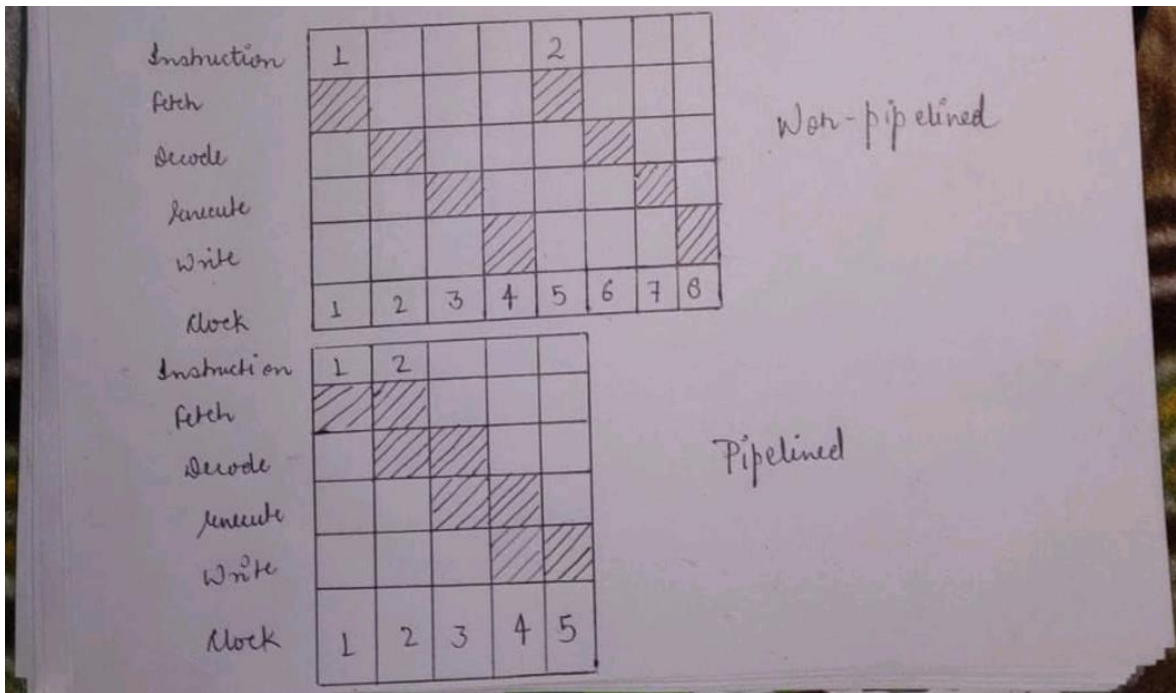 Instruction 1 2
Fetch
Decode
Execute
Write
Clock 1 2 3 4 5 6 7 8
Non-pipelined
Instruction 1 2
Fetch
Decode
Execute
Write
Clock 1 2 3 4 5
Pipelined